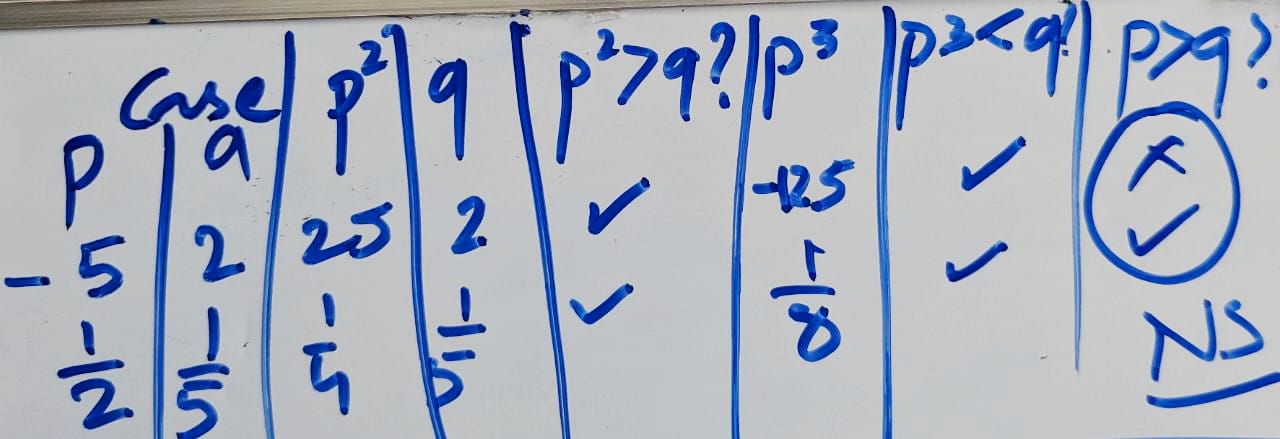 Case | p² | q | p²>q? | p³ | p³<q? | p>q?
p | q
-5 | 2 | 25 | 2 | ✓ | -125 | ✓ | ×
1/2 | 1/5 | 1/4 | 1/5 | ✓ | 1/8 | ✓ | ✓
NS